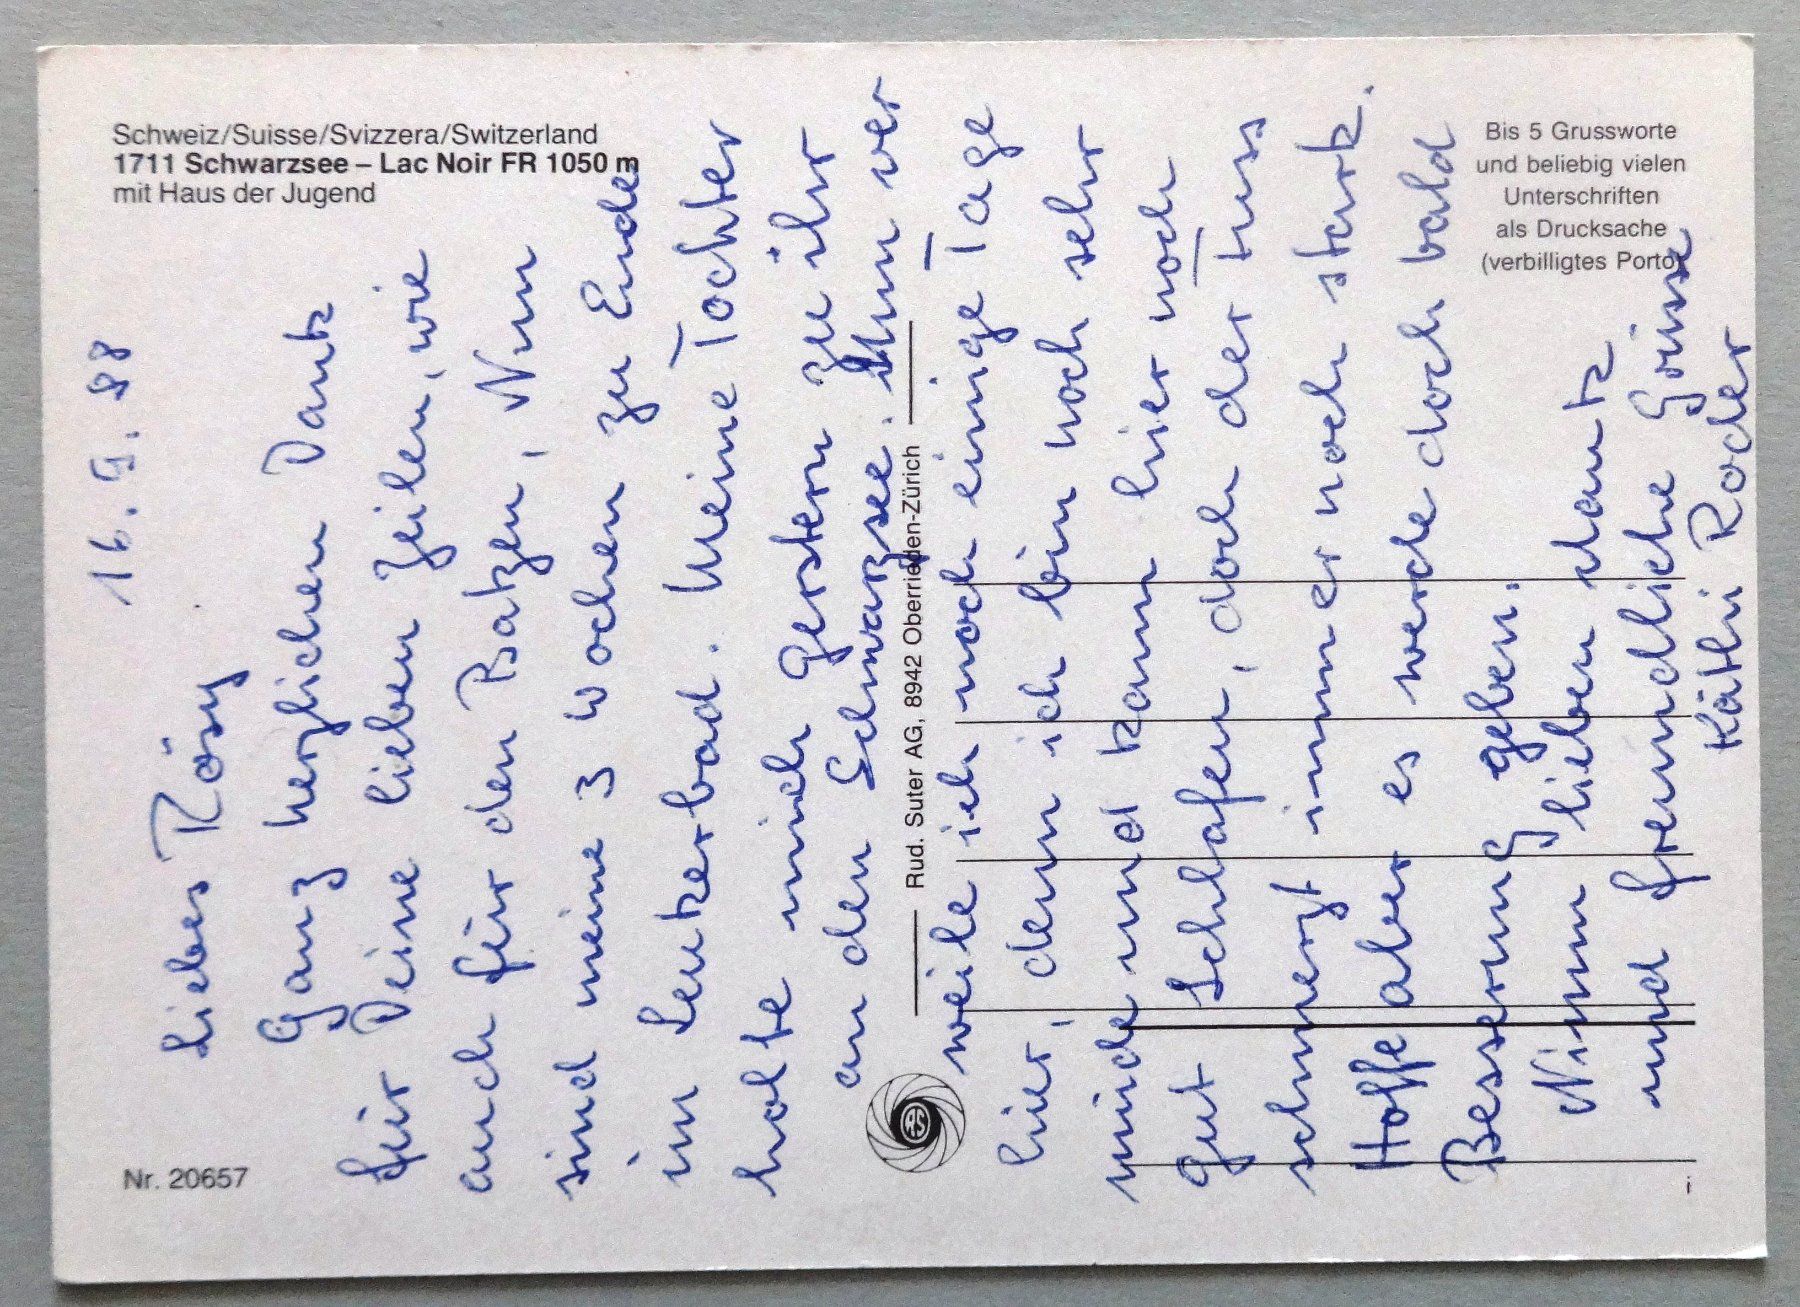 Schweiz/Suisse/Svizzera/Switzerland
1711 Schwarzsee – Lac Noir FR 1050 m
mit Haus der Jugend
Bis 5 Grussworte
und beliebig vielen
Unterschriften
als Drucksache
(verbilligtes Porto)
Nr. 20657
Rud. Suter AG, 8942 Oberrieden-Zürich
RS
i
16. 88
Liebes Rösy
Ganz herzlichen Dank
für Deine lieben Zeilen, wie
auch für den Batzen, Nun
sind meine 3 wochen zu Ende
im Leukerbad. Meine Tochter
holte mich gestern zu ihr
an den Schwarzsee. Nun ver
weile ich noch einige Tage
hier, denn ich bin noch sehr
müde und kann hier noch
gut Schlafen, doch der Fuss
schmerzt immer noch stark.
Hoffe aber es werde doch bald
Besserung geben.
Nimm lieben dank
und freundliche Grüsse
Käthi Roder